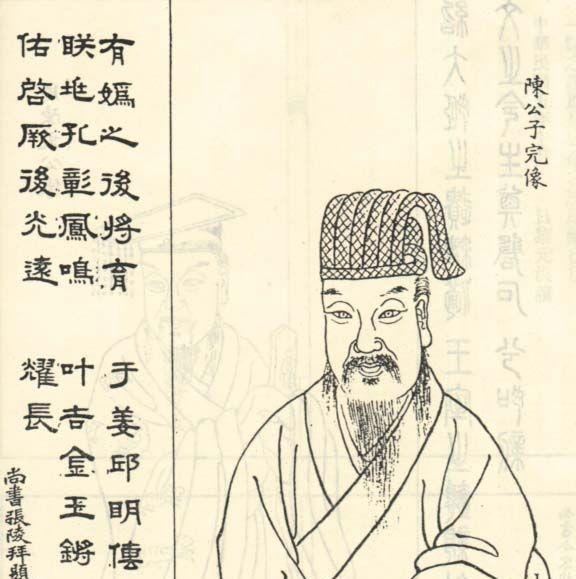 陳公子完像
有媯之後將育 于姜邱明傳
眹兆孔彰鳳鳴 叶吉金玉鏘
佑啓厥後光遠 耀長
尚書張陵拜題